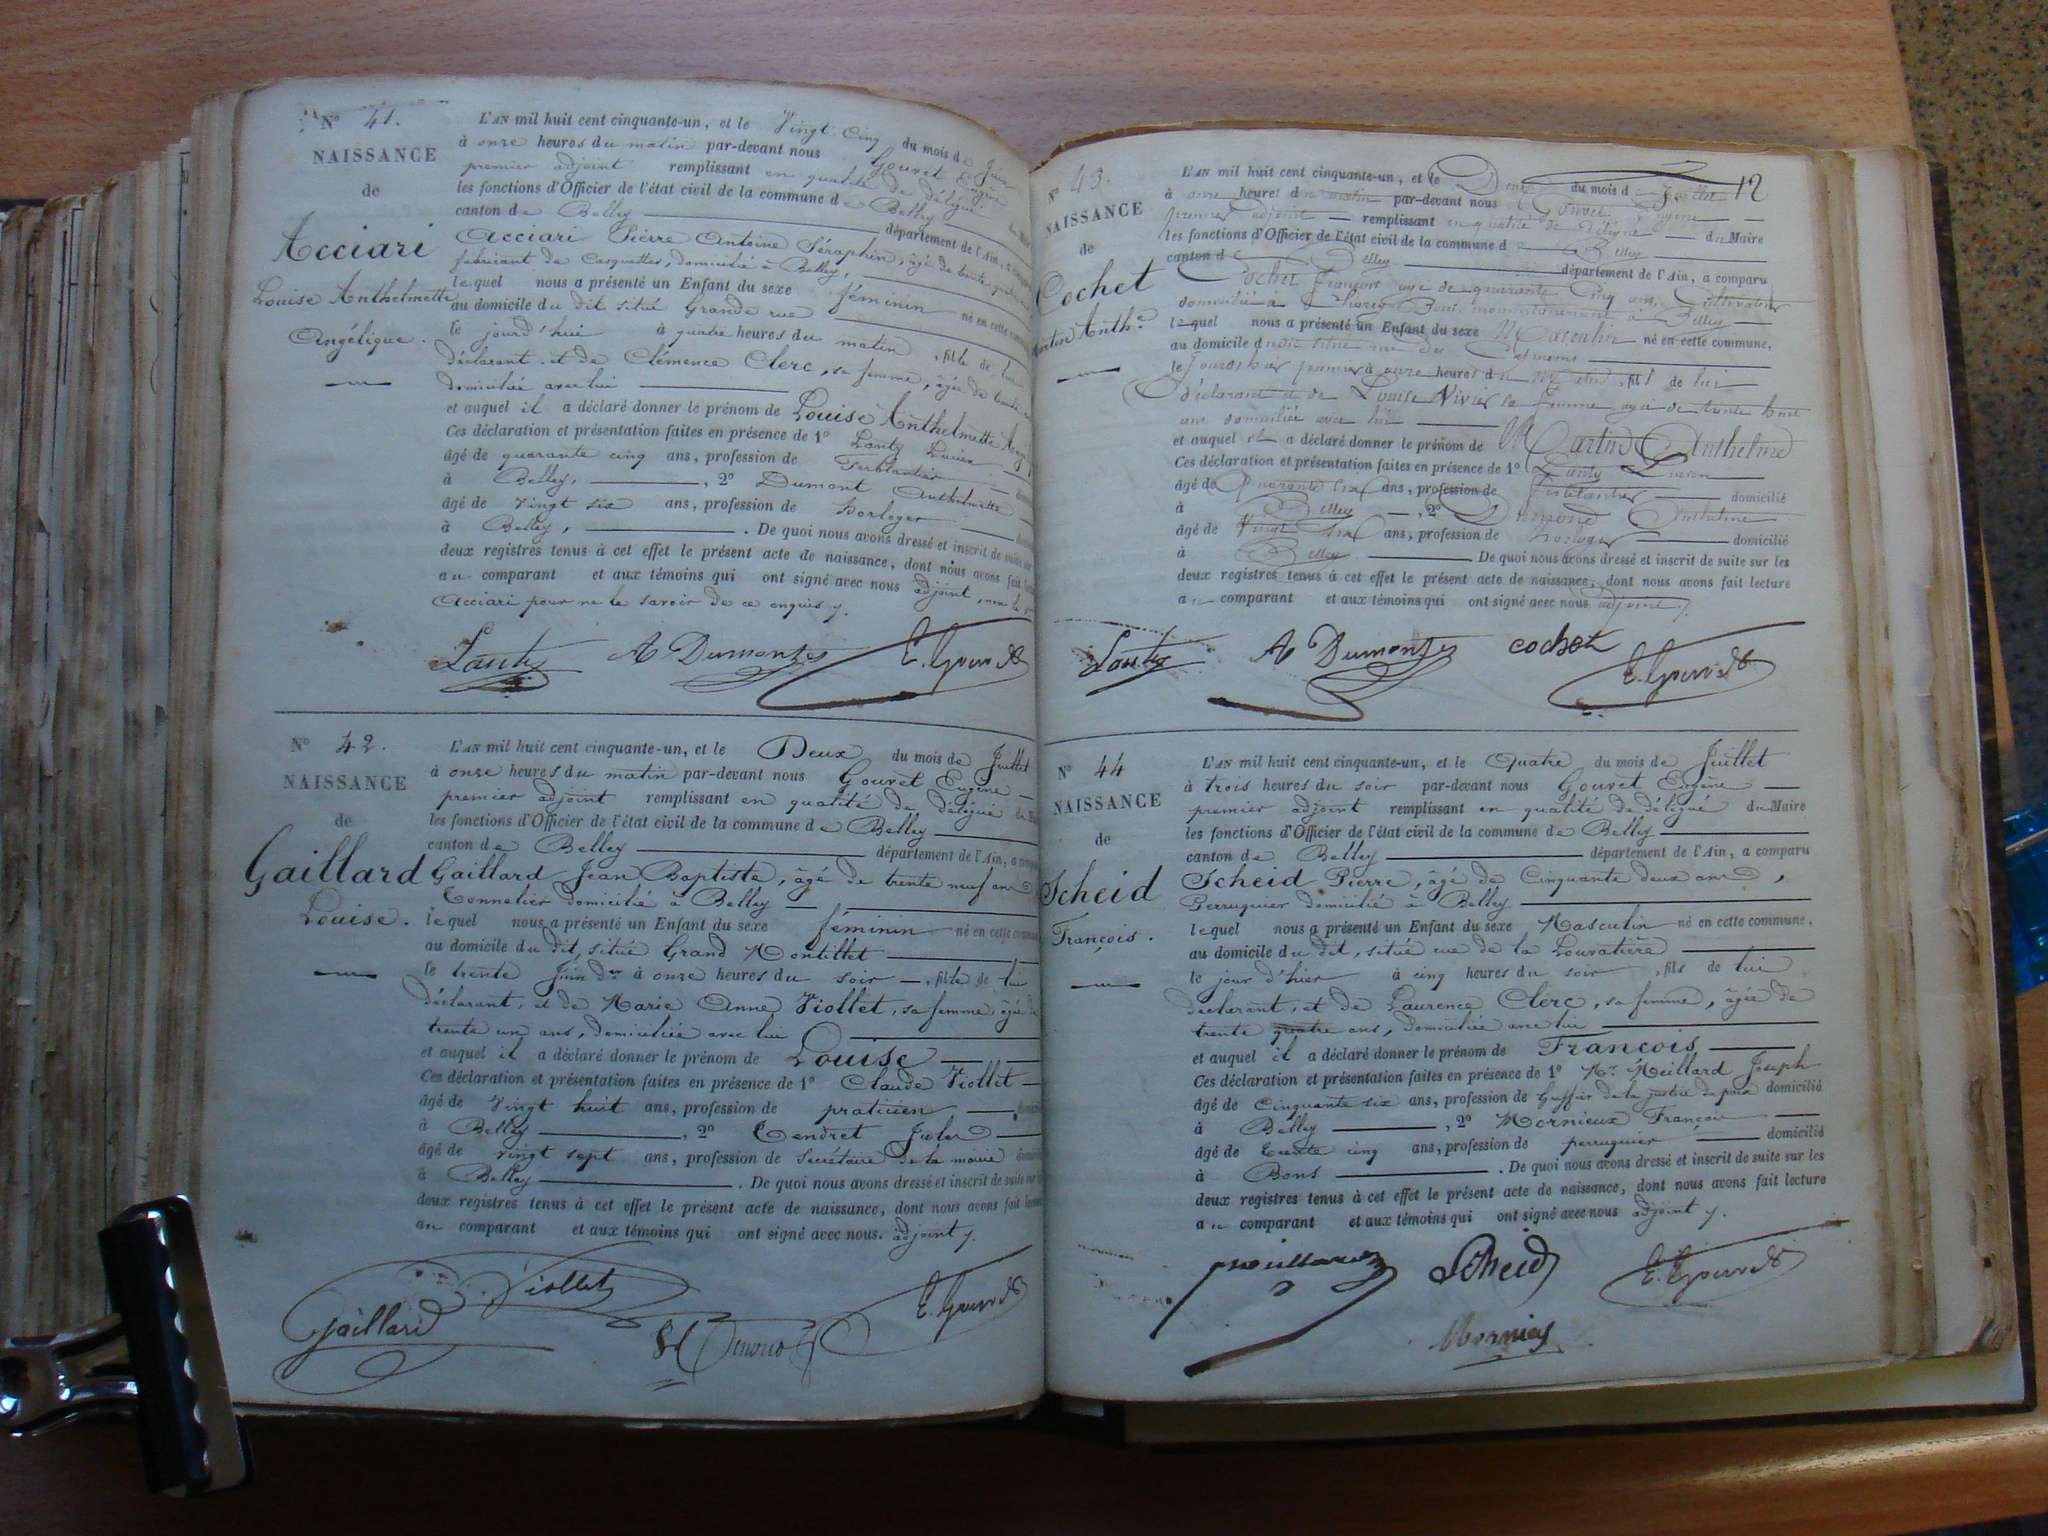 N° 41.
NAISSANCE
de
Acciari
Louise Anthelmette
Angélique.
L'AN mil huit cent cinquante-un, et le Vingt Cinq du mois de Juin
à onze heures du matin par-devant nous Gouvet Eugène
premier adjoint remplissant en qualité de délégué
les fonctions d'Officier de l'état civil de la commune de Belley
canton de Belley département de l'Ain, a
Acciari Pierre Antoine Séraphin, âgé de trente
fabricant de Casquettes, domicilié à Belley,
lequel nous a présenté un Enfant du sexe féminin né en cette
au domicile du dit situé Grande rue
le jourd'hui à quatre heures du matin, fille de lui
déclarant et de Clémence Clerc, sa femme, âgée de trente
domiciliée avec lui
et auquel il a déclaré donner le prénom de Louise Anthelmette
Ces déclaration et présentation faites en présence de 1° Lauty Lucien
âgé de quarante cinq ans, profession de Ferblantier
à Belley, , 2° Dumont Anthelmette
âgé de vingt six ans, profession de horloger
à Belley, . De quoi nous avons dressé et inscrit de suite
deux registres tenus à cet effet le présent acte de naissance, dont nous avons fait
au comparant et aux témoins qui ont signé avec nous adjoint, non le
Acciari pour ne le savoir de ce enquis
Lauty A Dumont E. Gouvet
N° 42.
NAISSANCE
de
Gaillard
Louise.
L'AN mil huit cent cinquante-un, et le Deux du mois de Juillet
à onze heures du matin par-devant nous Gouvet Eugène
premier adjoint remplissant en qualité de délégué
les fonctions d'Officier de l'état civil de la commune de Belley
canton de Belley département de l'Ain, a
Gaillard Jean Baptiste, âgé de trente neuf ans
Tonnelier domicilié à Belley
lequel nous a présenté un Enfant du sexe féminin né en cette
au domicile du dit, situé Grand Montillet
le trente Juin dr à onze heures du soir, fille de lui
déclarant, et de Marie Anne Viollet, sa femme, âgée de
trente un ans, domiciliée avec lui
et auquel il a déclaré donner le prénom de Louise
Ces déclaration et présentation faites en présence de 1° Claude Viollet
âgé de vingt huit ans, profession de praticien
à Belley , 2° Tendret Jules
âgé de vingt sept ans, profession de Secrétaire de la mairie
à Belley . De quoi nous avons dressé et inscrit de suite sur
deux registres tenus à cet effet le présent acte de naissance, dont nous avons fait
au comparant et aux témoins qui ont signé avec nous. adjoint
Gaillard Viollet E. Gouvet
12
N° 43.
NAISSANCE
de
Cochet
Martin Anthe
L'AN mil huit cent cinquante-un, et le Deux du mois d Juillet
à onze heures du matin par-devant nous Gouvet Eugène
premier adjoint remplissant en qualité de délégué du Maire
les fonctions d'Officier de l'état civil de la commune de Belley
canton de Belley département de l'Ain, a comparu
Cochet François âgé de quarante cinq ans, cultivateur
domicilié à momentanément à Belley
lequel nous a présenté un Enfant du sexe Masculin né en cette commune,
au domicile du dit situé rue des
le jour d'hier premier à onze heures du matin, fils de lui
déclarant et de Louise Vivier sa femme âgée de trente huit
ans domiciliée avec lui
et auquel il a déclaré donner le prénom de Martin Anthelme
Ces déclaration et présentation faites en présence de 1° Lauty Lucien
âgé de Quarante six ans, profession de Ferblantier domicilié
à Belley , 2° Dumond Anthelme
âgé de Vingt six ans, profession de horloger domicilié
à Belley De quoi nous avons dressé et inscrit de suite sur les
deux registres tenus à cet effet le présent acte de naissance, dont nous avons fait lecture
au comparant et aux témoins qui ont signé avec nous adjoint
Lauty A Dumont cochet E. Gouvet
N° 44
NAISSANCE
de
Scheid
François.
L'AN mil huit cent cinquante-un, et le Quatre du mois de Juillet
à trois heures du soir par-devant nous Gouvet Eugène
premier adjoint remplissant en qualité de délégué du Maire
les fonctions d'Officier de l'état civil de la commune de Belley
canton de Belley département de l'Ain, a comparu
Scheid Pierre, âgé de Cinquante deux ans,
Perruquier domicilié à Belley
lequel nous a présenté un Enfant du sexe Masculin né en cette commune,
au domicile du dit, situé rue de la Louvatière
le jour d'hier à cinq heures du soir, fils de lui
déclarant, et de Laurence Clerc, sa femme, âgée de
trente quatre ans, domiciliée avec lui
et auquel il a déclaré donner le prénom de François
Ces déclaration et présentation faites en présence de 1° Mr Meillard Joseph
âgé de Cinquante six ans, profession de Greffier de la justice de paix domicilié
à Belley , 2° Mornieux François
âgé de Trente cinq ans, profession de perruquier domicilié
à Bons . De quoi nous avons dressé et inscrit de suite sur les
deux registres tenus à cet effet le présent acte de naissance, dont nous avons fait lecture
au comparant et aux témoins qui ont signé avec nous adjoint
Meillard Scheid E. Gouvet